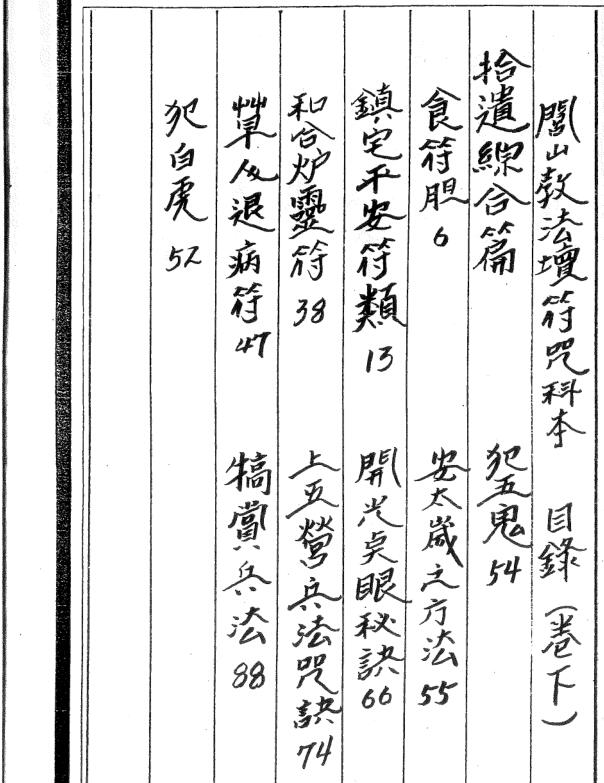 閭山教法壇符咒科本 目錄（卷下）
拾遺綜合篇
食符胆 6
鎮宅平安符類 13
和合炉靈符 38
草人退病符 47
犯白虎 52
犯五鬼 54
安太歲之方法 55
開光点眼秘訣 66
上五營兵法咒訣 74
犒賞兵法 88